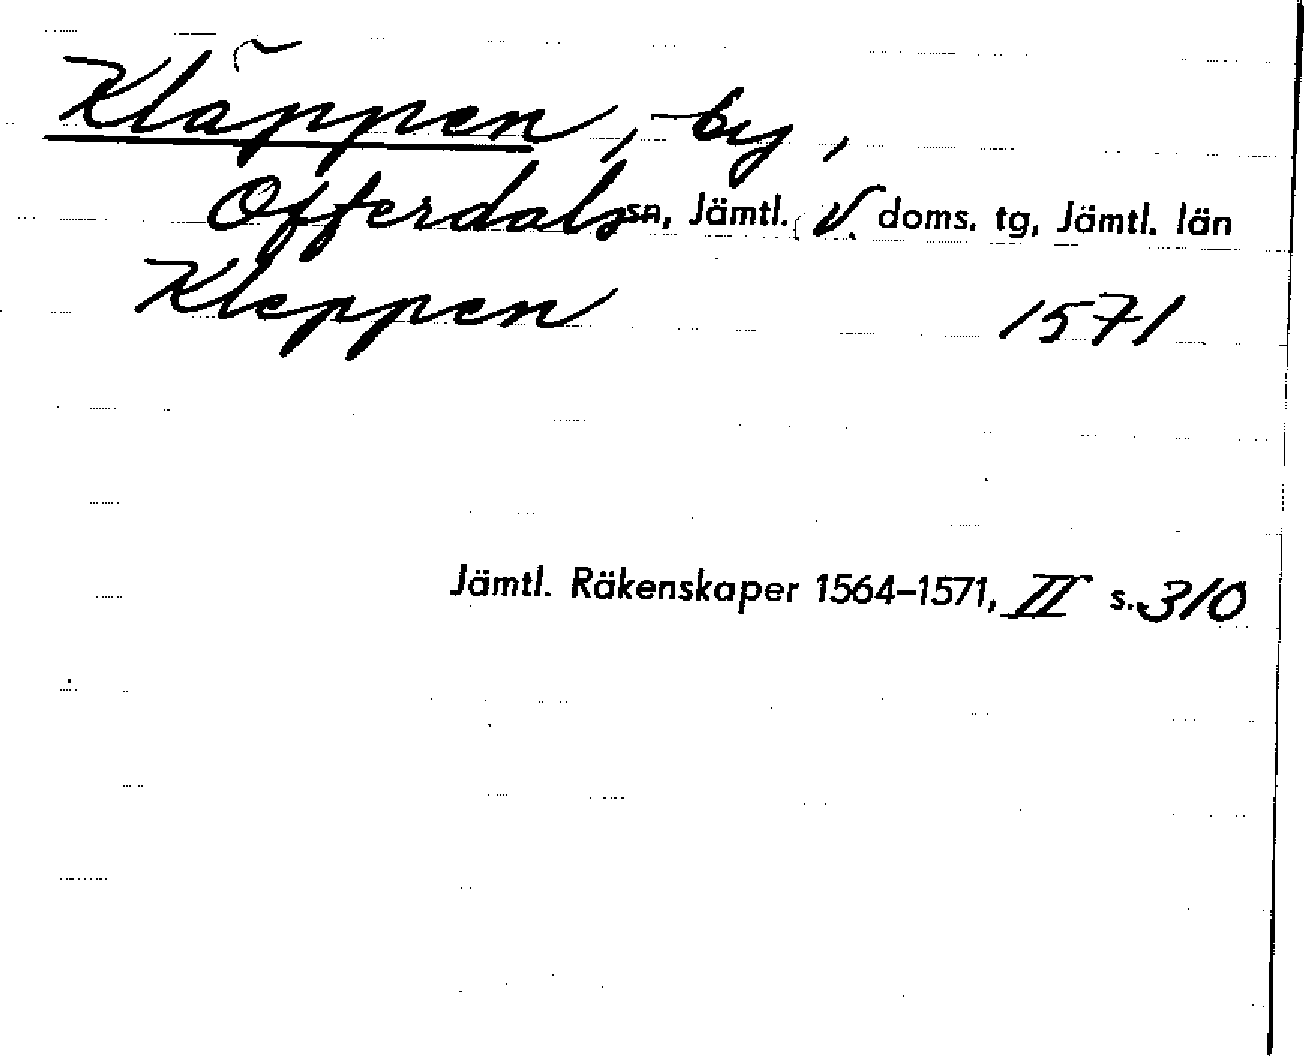 Kläppen, by,
Offerdals sn, Jämtl. V. doms. tg, Jämtl. län
Kleppen 1571
Jämtl. Räkenskaper 1564-1571, II s. 310